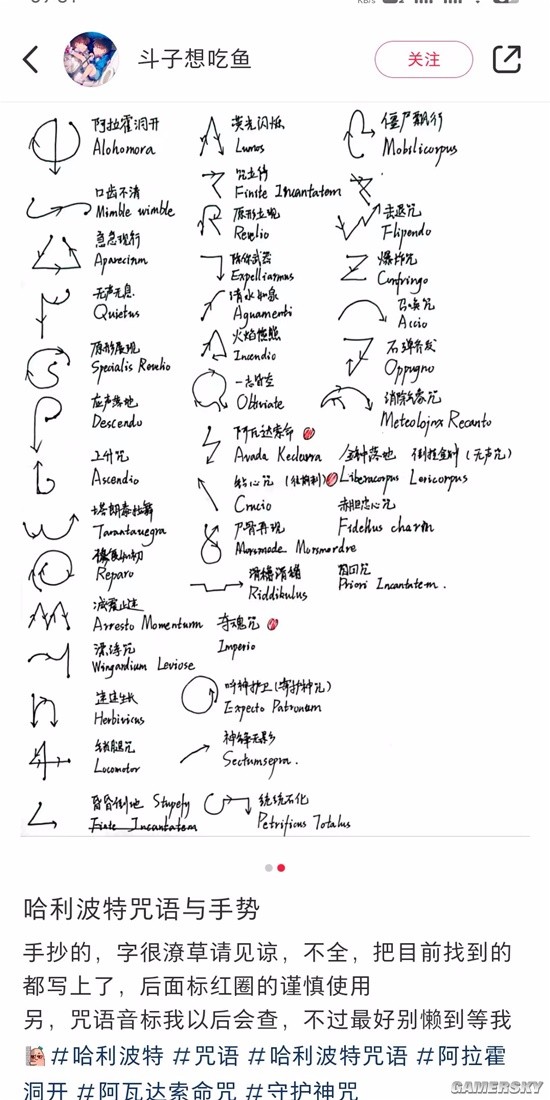 斗子想吃鱼
关注
阿拉霍洞开
Alohomora
荧光闪烁
Lumos
僵尸飘行
Mobilicorpus
咒立停
Finite Incantatem
口齿不清
Mimble wimble
原形立现
Revelio
击退咒
Flipendo
急急现形
Aparecium
除你武器
Expelliarmus
爆炸咒
Confringo
无声无息
Quietus
清水如泉
Aguamenti
召唤咒
Accio
原形显现
Specialis Revelio
火焰熊熊
Incendio
万弹齐发
Oppugno
应声落地
Descendo
一忘皆空
Obliviate
消除咒
Meteolojinx Recanto
上升咒
Ascendio
阿瓦达索命
Avada Kedavra
金钟落地
Liberacorpus
倒挂金钟(无声咒)
Levicorpus
塔朗泰拉舞
Tarantanegra
钻心咒
Crucio
赤胆忠心咒
Fidelius charm
恢复如初
Reparo
尸骨再现
Morsmode Morsmordre
闪回咒
Priori Incantatem.
滑稽滑稽
Riddikulus
减震止速
Arresto Momentum
夺魂咒
Imperio
漂浮咒
Wingardium Leviose
速速生长
Herbivicus
呼神护卫(守护神咒)
Expecto Patronum
锁腿咒
Locomotor
神锋无影
Sectumsepra.
昏昏倒地 Stupefy
Finte Incantatem
统统石化
Petrificus Totalus
哈利波特咒语与手势
手抄的，字很潦草请见谅，不全，把目前找到的
都写上了，后面标红圈的谨慎使用
另，咒语音标我以后会查，不过最好别懒到等我
#哈利波特 #咒语 #哈利波特咒语 #阿拉霍
洞开 #阿瓦达索命咒 #守护神咒
GAMERSKY